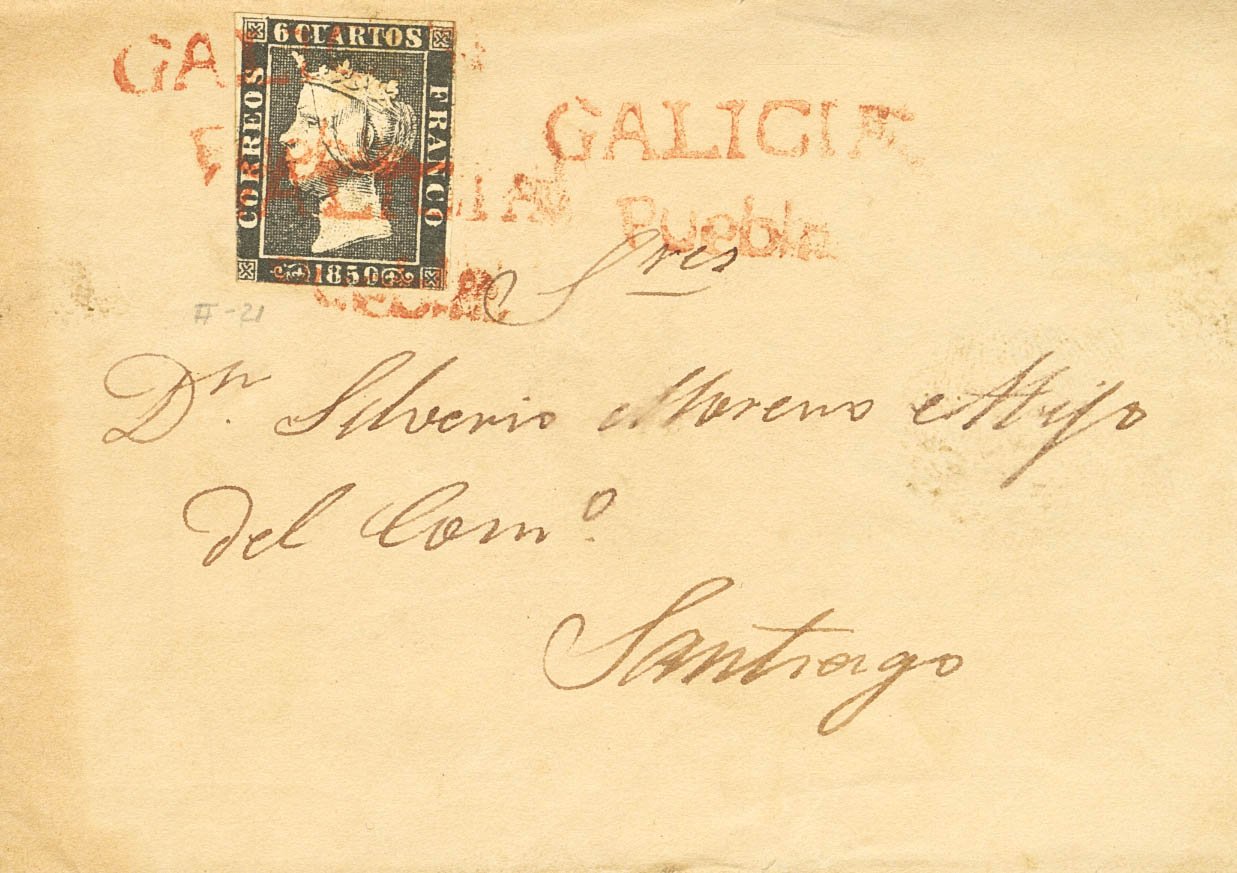 6 CUARTOS
CORREOS
FRANCO
1850
GALICIA
Puebla
II-21
Sres
Dn. Silverio Moreno e Hijo
del Comº.
Santiago